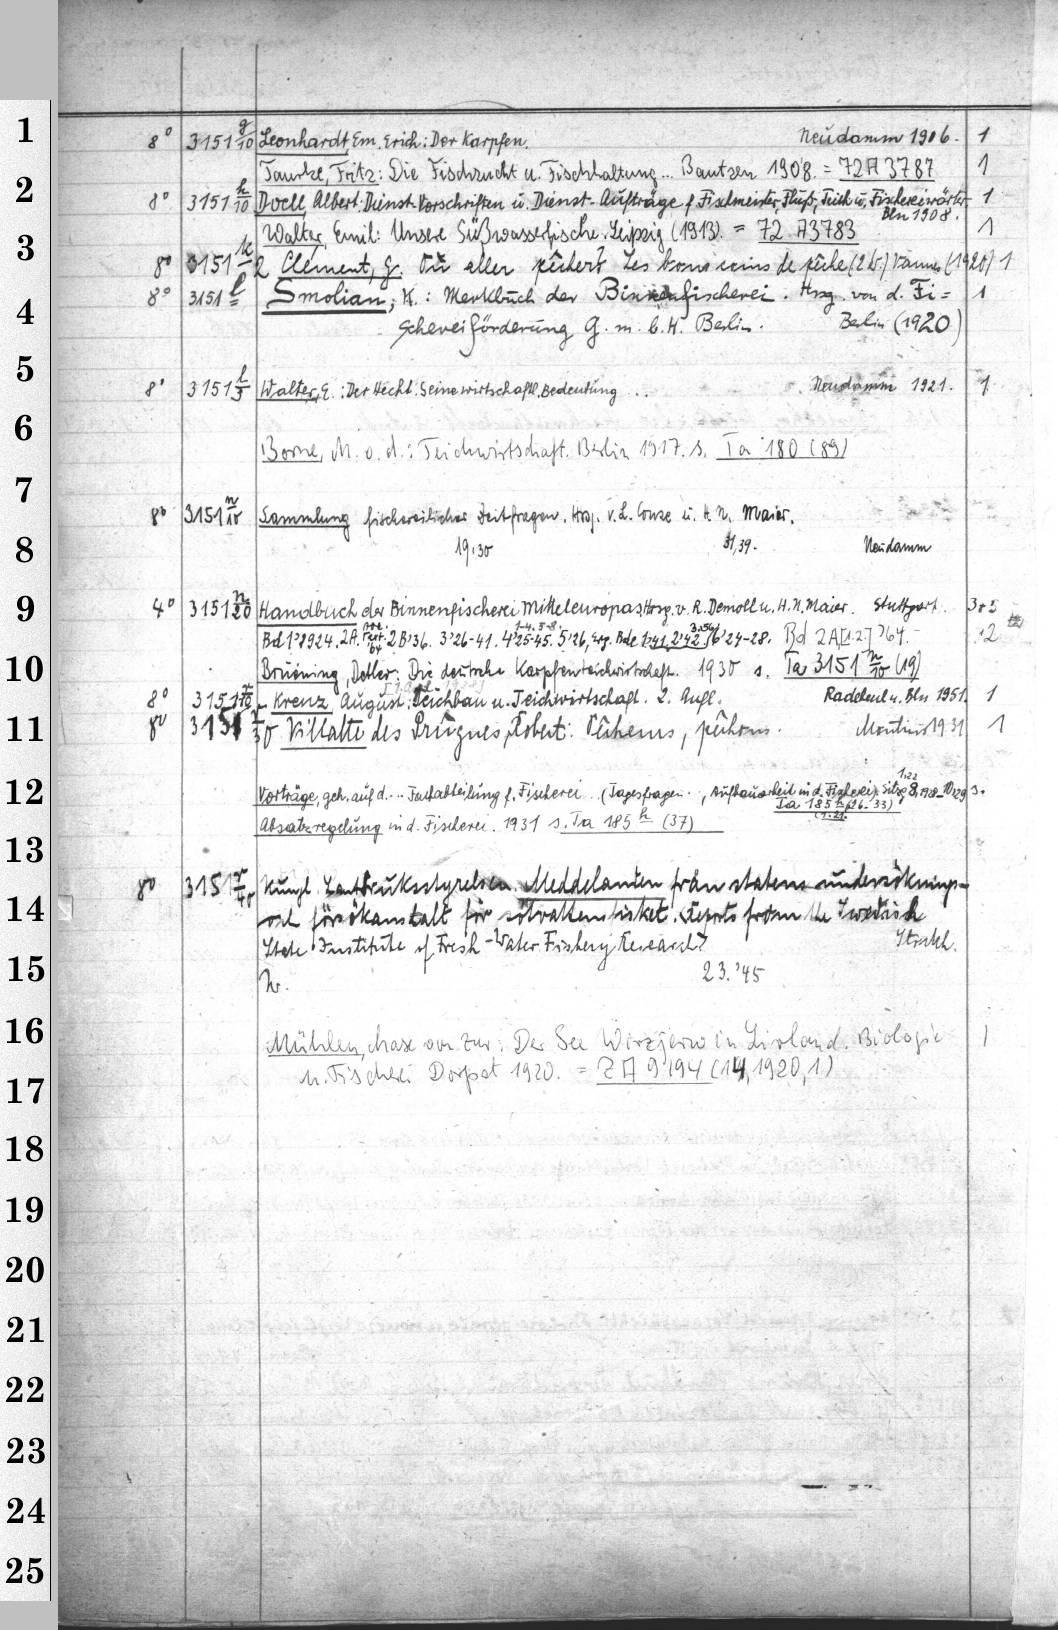 1
8° 3151 g/10 Leonhardt, Em. Erich: Der Karpfen. Neudamm 1906. 1
Taurke, Fritz: Die Fischzucht u. Fischhaltung... Bautzen 1908. = 72 A 3787 1
2
8° 3151 h/10 Doell, Albert: Dienst-Vorschriften u. Dienst-Aufträge f. Fischmeister, Fluß-, Teich u. Fischereiwärter. 1
Bln 1908.
Walter, Emil: Unsere Süßwasserfische. Leipzig (1913). = 72 A3783 1
3
8° 3151 k/2 Clément, G. Où aller pêcher? Les bons coins de pêche (2 b.) Vannes (1920) 1
8° 3151 l Smolian, K.: Merkbuch der Binnenfischerei. Hrsg. von d. Fi= 1
4
schereiförderung G. m. b. H. Berlin. Berlin (1920)
5
8° 3151 l/5 Walter, E.: Der Hecht. Seine wirtschaftl. Bedeutung ... Neudamm 1921. 1
6
Borne, M. v. d.: Teichwirtschaft. Berlin 1917. s. Ta 180 (89)
7
8° 3151 n/10 Sammlung fischereilicher Zeitfragen. Hrsg. v. L. Cruse u. H. N. Maier.
8
19.'30 31,39. Neudamm
9
4° 3151 n/20 Handbuch der Binnenfischerei Mitteleuropas. Hrsg. v. R. Demoll u. H. N. Maier. Stuttgart.
Bd 1.'1924. 2A. 2B'36. 3'26-41. 4'25-45. 5'26, Erg. Bde 1'41. 2'42. 6'24-28. Bd 2A,[1.2.]'64.
10
Bruening, Detlev: Die deutsche Karpfenteichwirtschaft. 1930 s. Ta 3151 n/10 (19)
8° 3151 Krenz, August: Teichbau u. Teichwirtschaft. 2. Aufl. Radebeul u. Bln 1951. 1
11
8° 3151 r/30 Villatte des Prûgnes, Robert: Pêcheurs, pêchons. Moutiers 1931 1
12
Vorträge, geh. auf d. ... Fachabteilung f. Fischerei (Tagesfragen .. , Aufbauarbeit in d. Fischerei).
Ta 185 h (26-33)
Absatzregelung in d. Fischerei. 1931 s. Ta 185 h (37)
13
8° 3151 r/40 Kungl. Lantbruksstyrelsen. Meddelanden från statens undersöknings-
14
och försöksanstalt för sötvattensfisket. (Reports from the Swedish
State Institute of Fresh-Water Fishery Research) Stockh.
15
Nr. 23.'45
16
Mühlen, Max von zur: Der See Wirzjerw in Livland. Biologie 1
u. Fischerei Dorpat 1920. = Z A 9194 (14,1920,1)
17
18
19
20
21
22
23
24
25